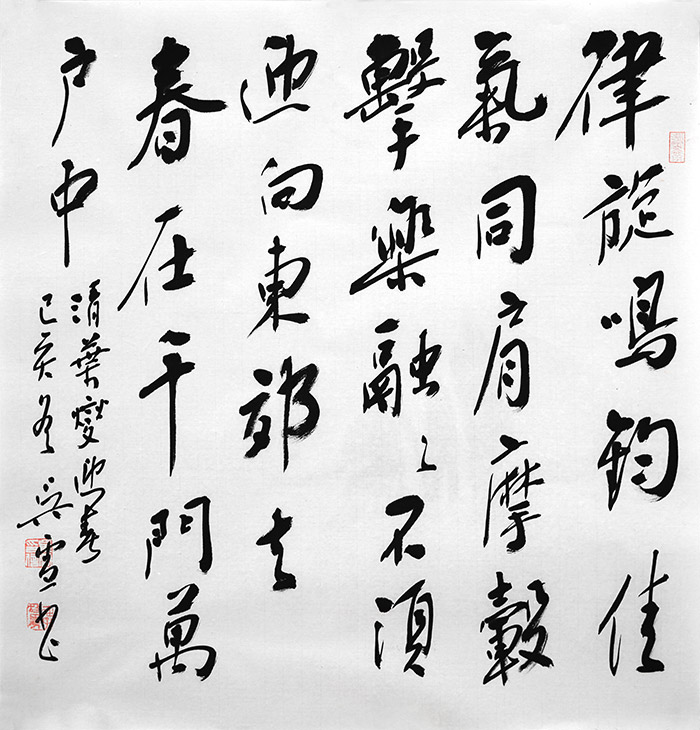 律旋鳴鈞佳
氣同肩摩轂
擊樂融々不須
迎向東郊去
春在千門萬
戶中
清葉燮迎春
己亥冬吳雪书